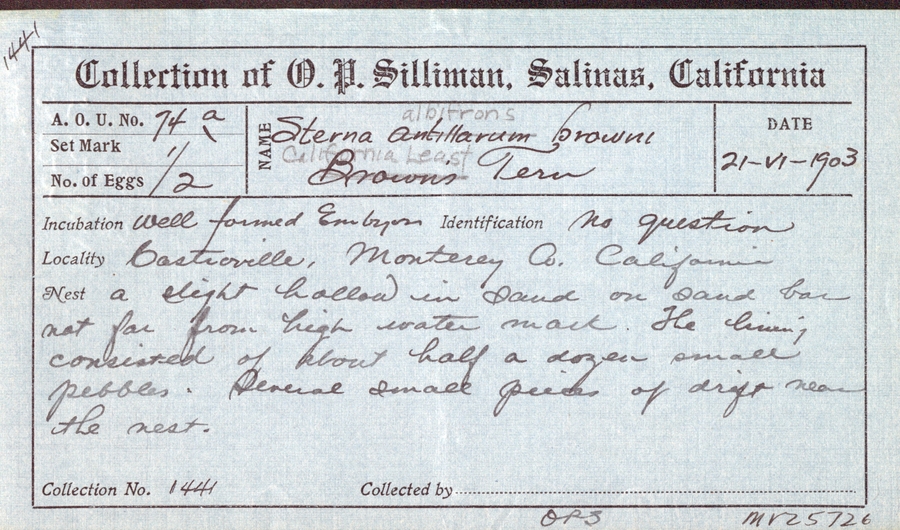 1441
Collection of O. P. Silliman, Salinas, California
A. O. U. No. 74 a
Set Mark 1/
No. of Eggs /2
NAME
albifrons
Sterna antillarum browni
California Least
Browns Tern
DATE
21-VI-1903
Incubation well formed Embryos Identification no question
Locality Castroville, Monterey Co. California
Nest a slight hollow in sand on sand bar
not far from high water mark. The lining
consisted of about half a dozen small
pebbles. Several small pieces of drift near
the nest.
Collection No. 1441 Collected by
OPS
MVZ5726